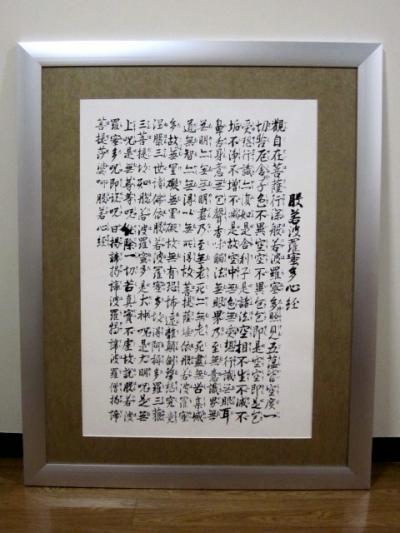 般若波羅蜜多心経
觀自在菩薩行深般若波羅蜜多時照見五蘊皆空度一
切苦厄舎利子色不異空空不異色色即是空空即是色
受想行識亦復如是舎利子是諸法空相不生不滅不
垢不浄不増不減是故空中無色無受想行識無眼耳
鼻舌身意無色聲香味觸法無眼界乃至無意識界無
無明亦無無明盡乃至無老死亦無老死盡無苦集滅
道無智亦無得以無所得故菩提薩埵依般若波羅蜜
多故心無罣礙無罣礙故無有恐怖遠離顛倒夢想究竟
涅槃三世諸佛依般若波羅蜜多故得阿耨多羅三藐
三菩提故知般若波羅蜜多是大神呪是大明呪是無
上呪是無等等呪能除一切苦真實不虚故説般若波
羅蜜多呪即説呪曰羯諦羯諦波羅羯諦波羅僧羯諦
菩提薩婆訶般若心経